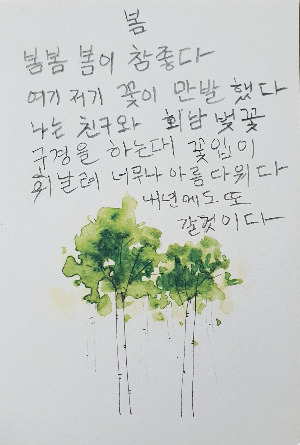 봄
봄봄 봄이 참좋다
여기 저기 꽃이 만발 했다
나는 친구와 회남 벚꽃
구경을 하는대 꽃잎이
휘날려 너무나 아름다웠다
내년에도 또
갈것이다